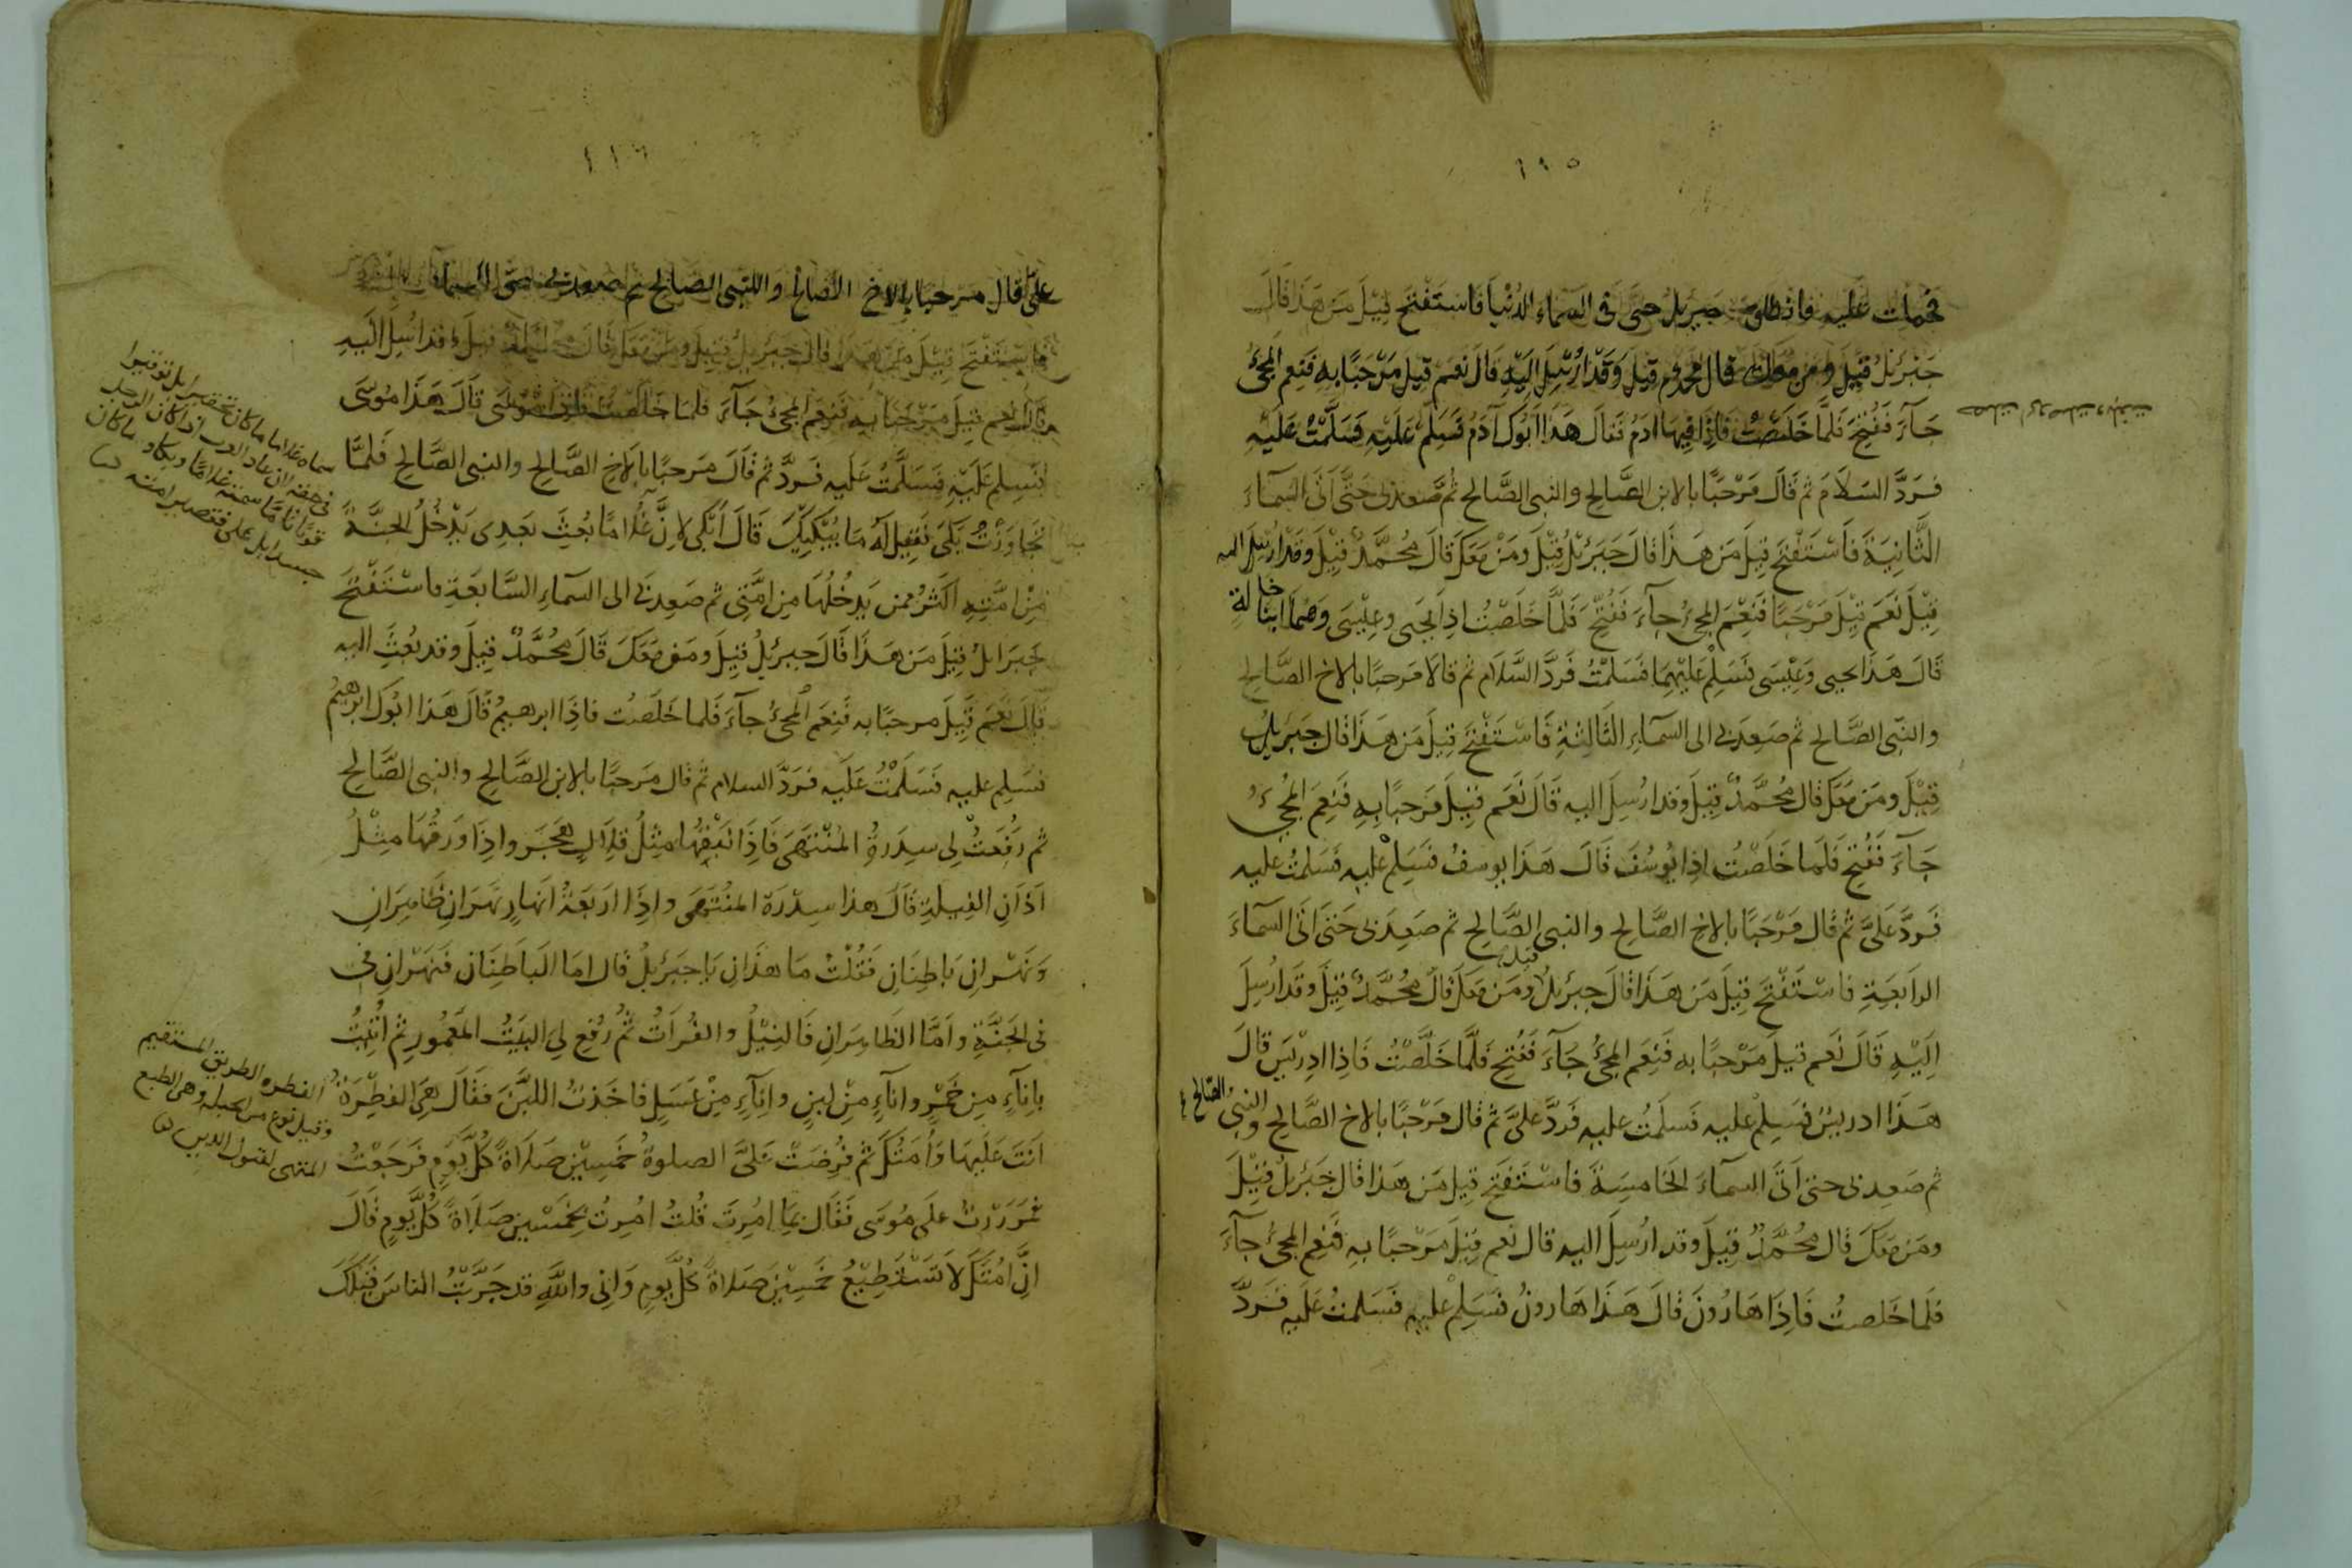 ١١٥
فحملت عليه فانطلق جبريل حتى اتى السماء الدنيا فاستفتح قيل من هذا قال
جبرئيل قيل ومن معك قال محمد قيل وقد ارسل اليه قال نعم قيل مرحبا به فنعم المجئ
جآء ففتح فلما خلصت فاذا فيها ادم فقال هذا ابوك آدم فسلم عليه فسلمت عليه
فرد السلام ثم قال مرحبا بالابن الصالح والنبى الصالح ثم صعد بى حتى اتى السماء
الثانية فاستفتح قيل من هذا قال جبرئل قيل ومن معك قال محمد قيل وقد ارسل اليه
قيل نعم قيل مرحبا فنعم المجئ جآء ففتح فلما خلصت اذا يحيى وعيسى وهما ابنا خالة
قال هذا يحيى وعيسى فسلم عليهما فسلمت فرد السلام ثم قالا مرحبا بالاخ الصالح
والنبى الصالح ثم صعد بى الى السمآء الثالثة فاستفتح قيل من هذا قال جبرئيل
قيل ومن معك قال محمد قيل وقد ارسل اليه قال نعم قيل مرحبا به فنعم المجئ
جآء ففتح فلما خلصت اذا يوسف قال هذا يوسف فسلم عليه فسلمت عليه
فرد على ثم قال مرحبا بالاخ الصالح والنبى الصالح ثم صعد بى حتى اتى السماء
الرابعة فاستفتح قيل من هذا قال جبرئيل قيل ومن معك قال محمد قيل وقد ارسل
اليه قال نعم قيل مرحبا به فنعم المجئ جآء ففتح فلما خلصت فاذا ادريس قال
هذا ادريس فسلم عليه فسلمت عليه فرد على ثم قال مرحبا بالاخ الصالح والنبى الصالح
ثم صعد بى حتى اتى السماء الخامسة فاستفتح قيل من هذا قال جبرئل قيل
ومن معك قال محمد قيل وقد ارسل اليه قال نعم قيل مرحبا به فنعم المجئ جآء
فلما خلصت فاذا هارون قال هذا هارون فسلم عليه فسلمت عليه فرد
١١٦
على قال مرحبا بالاخ الصالح والنبى الصالح ثم صعد بى حتى السماء
فاستفتح قيل من هذا قال جبرئيل قيل ومن معك قال محمد قيل وقد ارسل اليه
قال نعم قيل مرحبا به فنعم المجئ جآء فلما خلصت فاذا موسى قال هذا موسى
فسلم عليه فسلمت عليه فرد ثم قال مرحبا بالاخ الصالح والنبى الصالح فلما
تجاوزت بكى فقيل له ما يبكيك قال ابكى لان غلاما بعث بعدى يدخل الجنة
من امته اكثر ممن يدخلها من امتى ثم صعد بى الى السمآء السابعة فاستفتح
جبرايل قيل من هذا قال جبرئيل قيل ومن معك قال محمد قيل وقد بعث اليه
قال نعم قيل مرحبا به فنعم المجئ جآء فلما خلصت فاذا ابرهيم قال هذا ابوك ابرهيم
فسلم عليه فسلمت عليه فرد السلام ثم قال مرحبا بالابن الصالح والنبى الصالح
ثم رفعت لى سدرة المنتهى فاذا نبقها مثل قلال هجر واذا ورقها مثل
آذان الفيلة قال هذا سدرة المنتهى واذا اربعة انهار نهران ظاهران
ونهران باطنان فقلت ما هذان يا جبرئيل قال اما الباطنان فنهران فى
فى الجنة واما الظاهران فالنيل والفرات ثم رفع لى البيت المعمور ثم اتيت
باناء من خمر واناء من لبن واناء من عسل فاخذت اللبن فقال هى الفطرة
انت عليها وامتك ثم فرضت على الصلوة خمسين صلاة كل يوم فرجعت
فمررت على موسى فقال بما امرت قلت امرت بخمسين صلاة كل يوم قال
ان امتك لا تستطيع خمسين صلاة كل يوم وانى والله قد جربت الناس قبلك
سماه غلاما ما كان تحقيرا بل توقيرا
الفطره الطريق المستقيم
وقيل نوع من الجبلة وهى الطبع
المتهى لقبول الدين